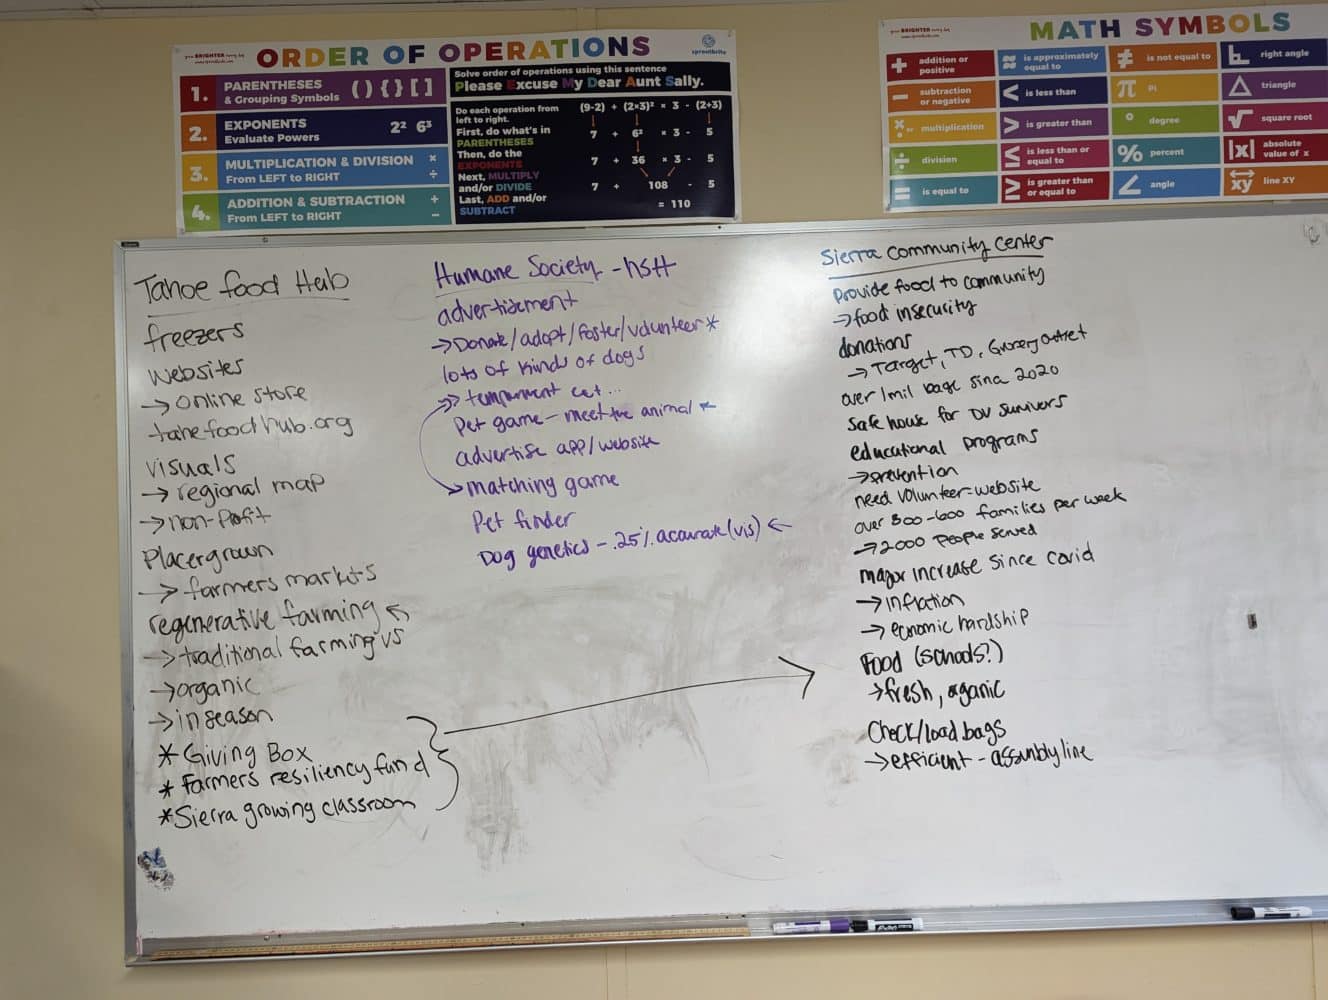 ORDER OF OPERATIONS
sproutbrite
1. PARENTHESES
& Grouping Symbols ( ) { } [ ]
2. EXPONENTS
Evaluate Powers 2² 6³
3. MULTIPLICATION & DIVISION × ÷
From LEFT to RIGHT
4. ADDITION & SUBTRACTION + −
From LEFT to RIGHT
Solve order of operations using this sentence
Please Excuse My Dear Aunt Sally.
Do each operation from
left to right.
First, do what's in
PARENTHESES
Then, do the
EXPONENTS
Next, MULTIPLY
and/or DIVIDE
Last, ADD and/or
SUBTRACT
(9-2) + (2×3)² × 3 - (2+3)
7 + 6² × 3 - 5
7 + 36 × 3 - 5
7 + 108 - 5
= 110
MATH SYMBOLS
+ addition or
positive
≈ is approximately
equal to
≠ is not equal to
right angle
− subtraction
or negative
< is less than
π Pi
△ triangle
multiplication
> is greater than
° degree
√ square root
÷ division
≤ is less than or
equal to
% percent
|x| absolute
value of x
= is equal to
≥ is greater than
or equal to
∠ angle
xy line XY
Tahoe food Hub
freezers
websites
→ online store
tahoefoodhub.org
visuals
→ regional map
→ non-Pofit
Placergrown
→ farmers markets
regenerative farming ←
→ traditional farming vs
→ organic
→ in season
* Giving Box
* Farmers resiliency fund
* Sierra growing classroom
Humane Society - hstt
advertisement
→ Donate/adopt/foster/volunteer *
lots of kinds of dogs
→ cat...
Pet game - meet the animal ←
advertise app/website
→ matching game
Pet finder
Dog genetics - .25% (vis) ←
Sierra community center
Provide food to community
→ food insecurity
donations
→ Target, TD, Grocery outlet
over 1mil bags 2020
Safe house for DV
educational programs
→ prevention
need volunteer-website
over 500-600 families per week
→ 2000 people served
major increase since covid
→ inflation
→ economic hardship
Food (schools?)
→ fresh, organic
Check/load bags
→ efficient - assembly line